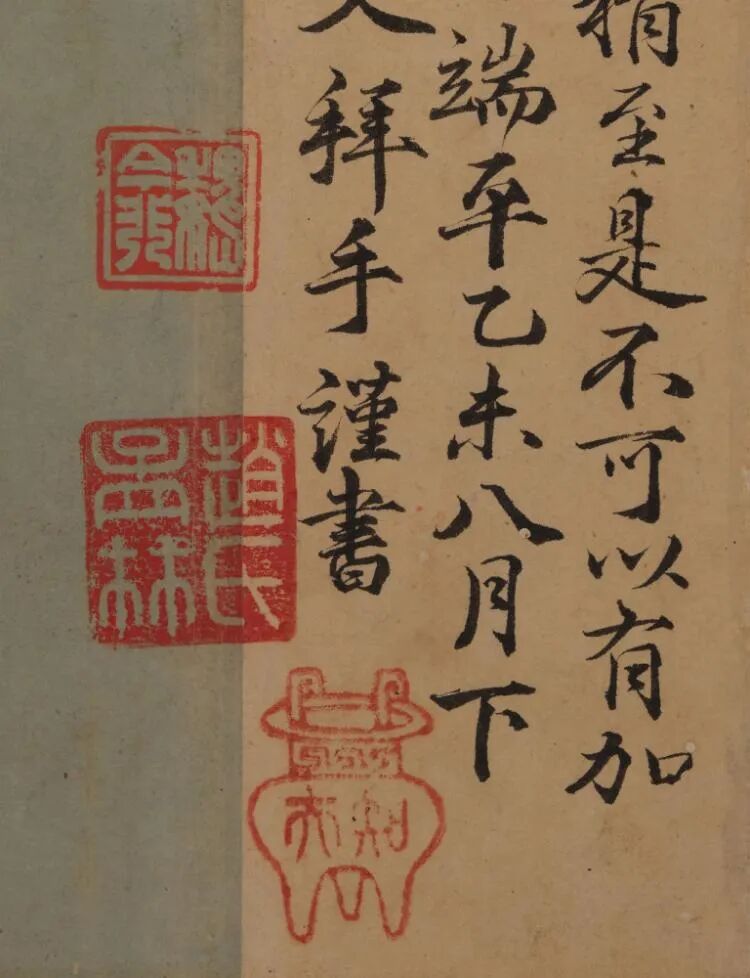 至是不可以有加
端平乙未八月下
拜手謹書
趙氏
孟林